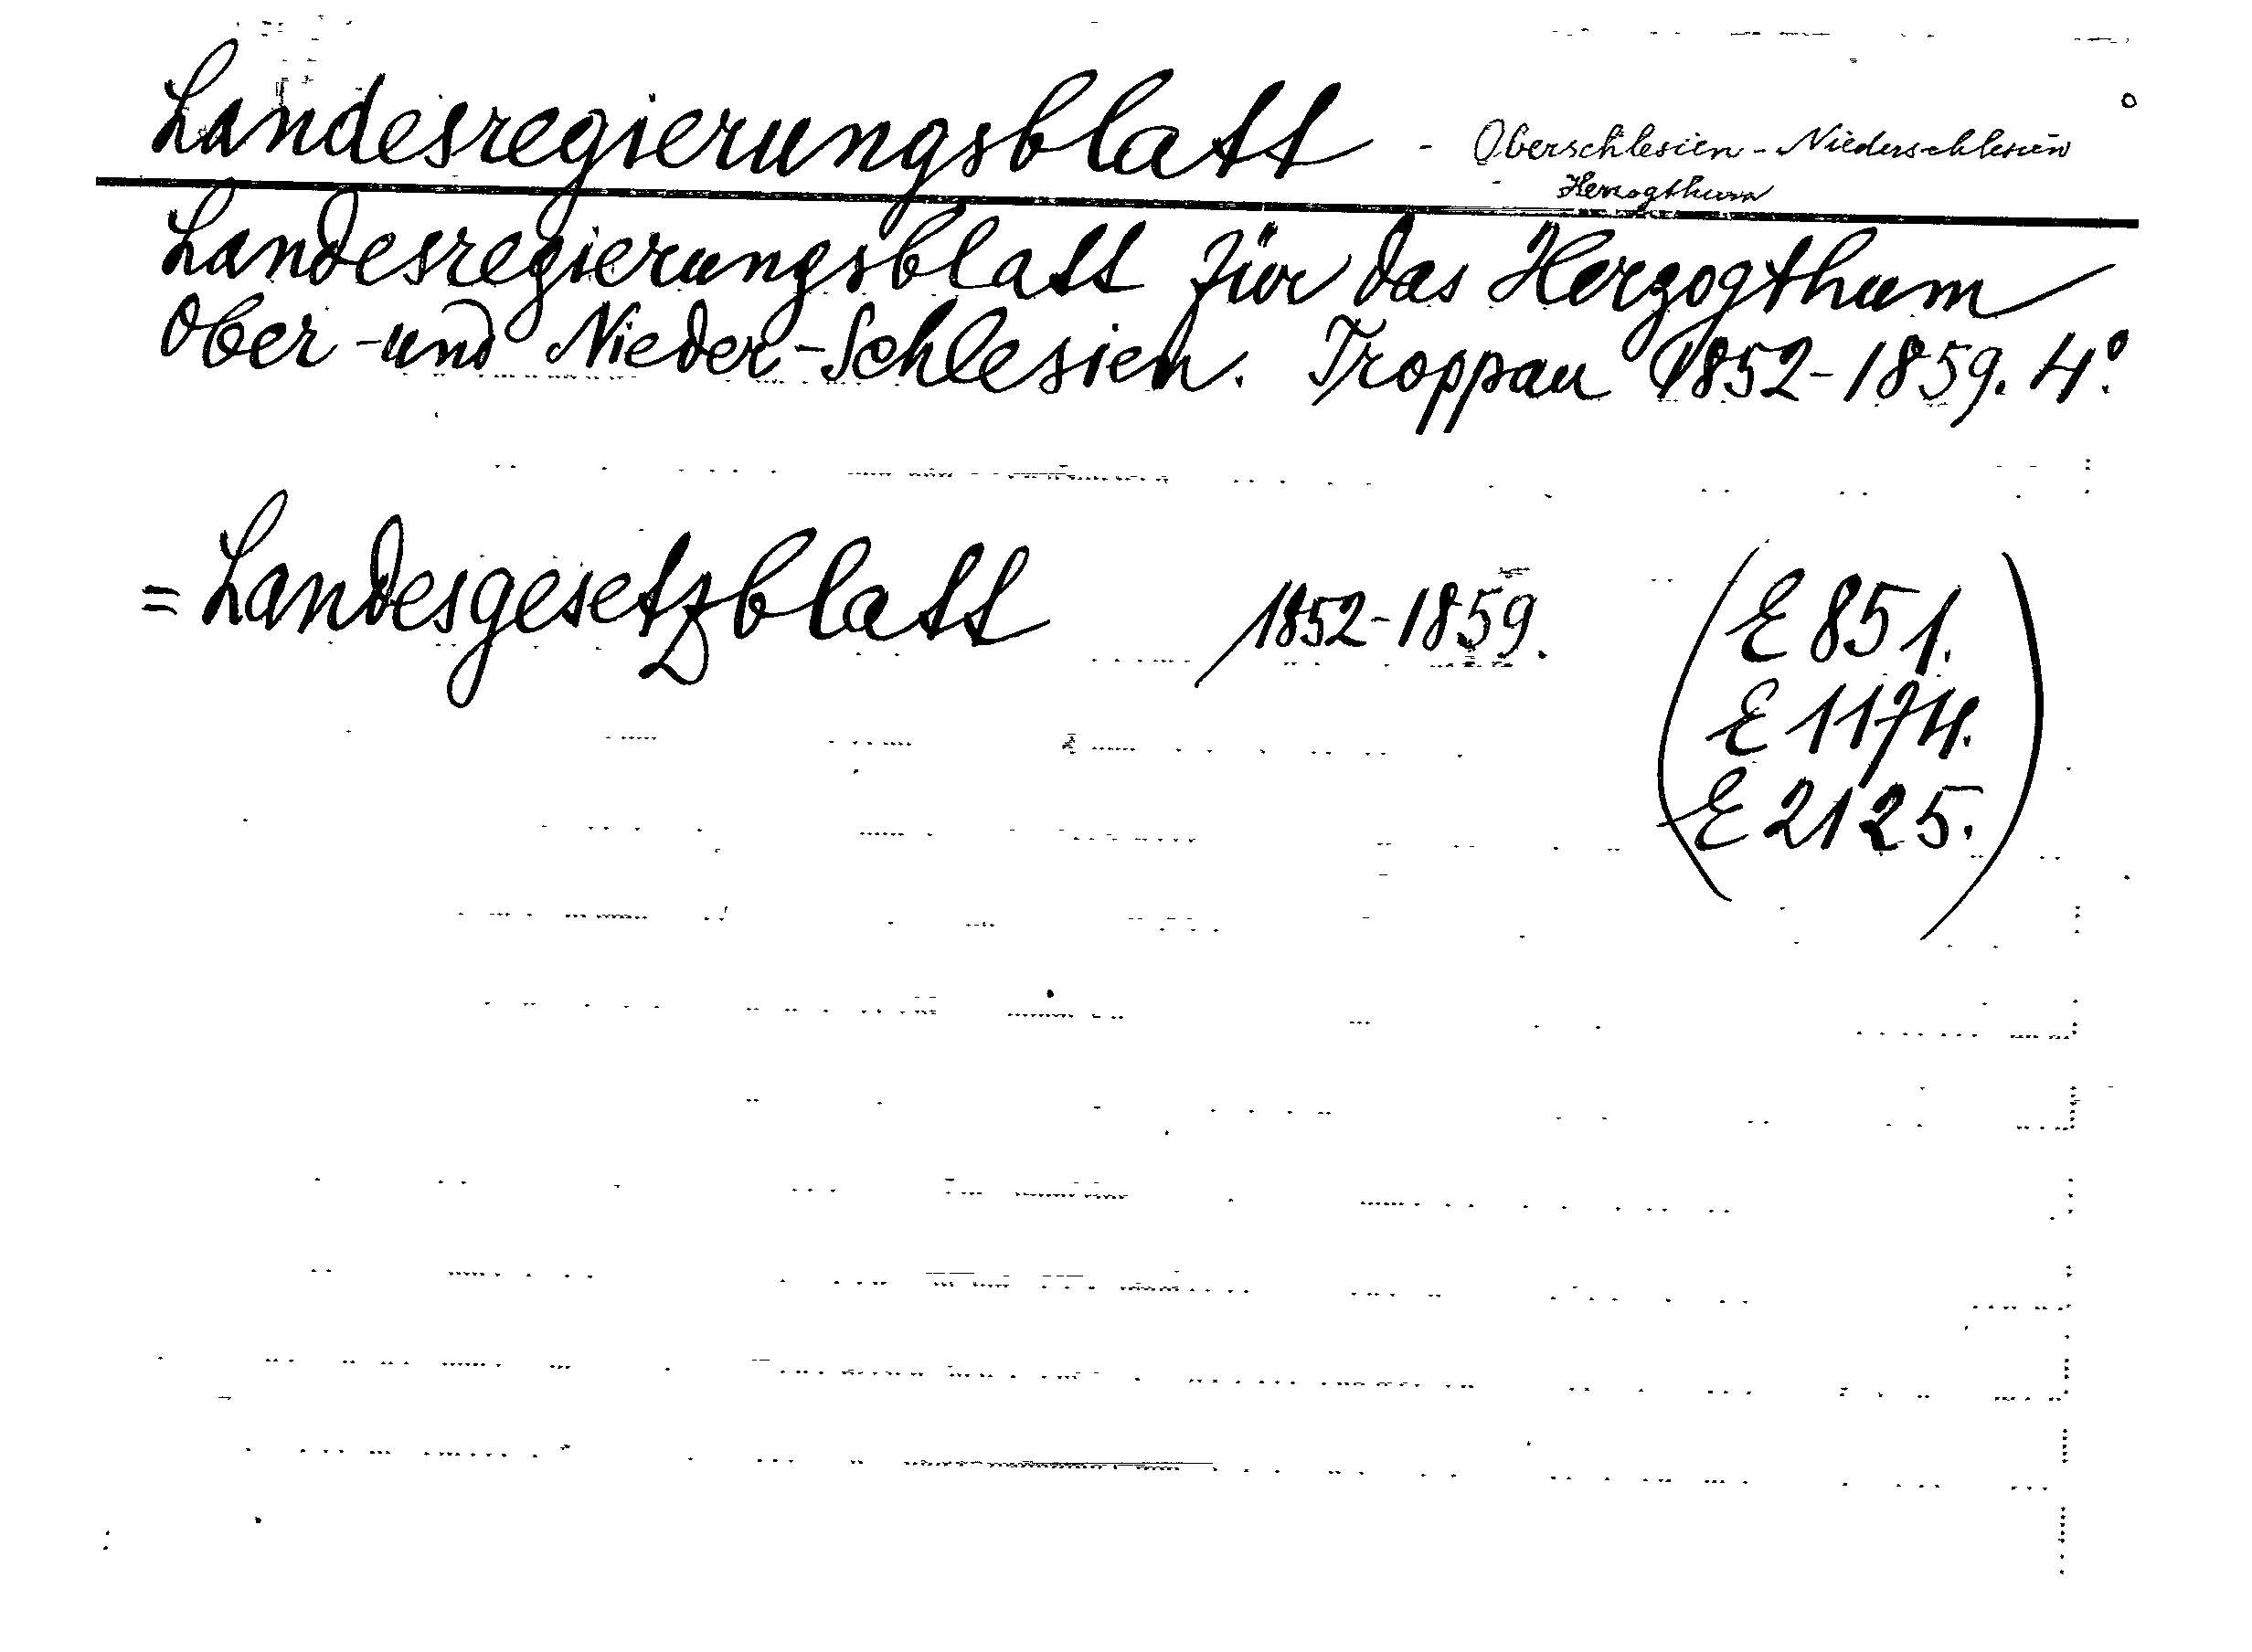 Landesregierungsblatt - Oberschlesien - Niederschlesien
- Herzogthum
Landesregierungsblatt für das Herzogthum
Ober- und Nieder-Schlesien. Troppau 1852-1859. 4°.
= Landesgesetzblatt 1852-1859. (E 851.
E 1174.
E 2125.)